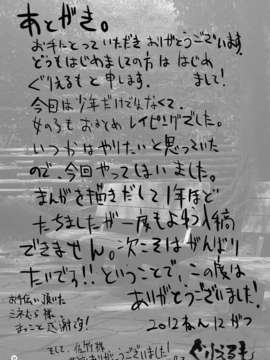 あとがき。
お手にとっていただきありがとうございます。
どうもはじめましての方は はじめ
ぐりえるもと申します。 まして!
今回は少年だけでなくて、
女の子もおまとめレイピングでした。
いつかはやりたいと思っていた
ので、今回やってしまいました。
まんがを描きだして1年ほど
たちましたが一度もよゆう入稿
できません。次こそはがんばり
たいでう!! ということで、この度は
ありがとうございました!
お手伝い頂いた
ミネむら様
まっこと感謝っす!
2012ねん12がつ
ぐりえるも
そして、佐竹様
ありがとうございました!